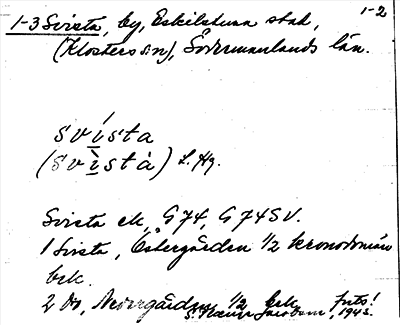 1-2
1-3 Svista, by, Eskilstuna stad,
(Klosters sn), Södermanlands län.
svísta
(svìstà) L. Hg.
Svista ek, G 74, G 74 SV.
1 Svista, Östergården 1/2 kronodomän
bek.
2 Do, Nedergården 1/2 bek. forts!
Jacobson, 1943.